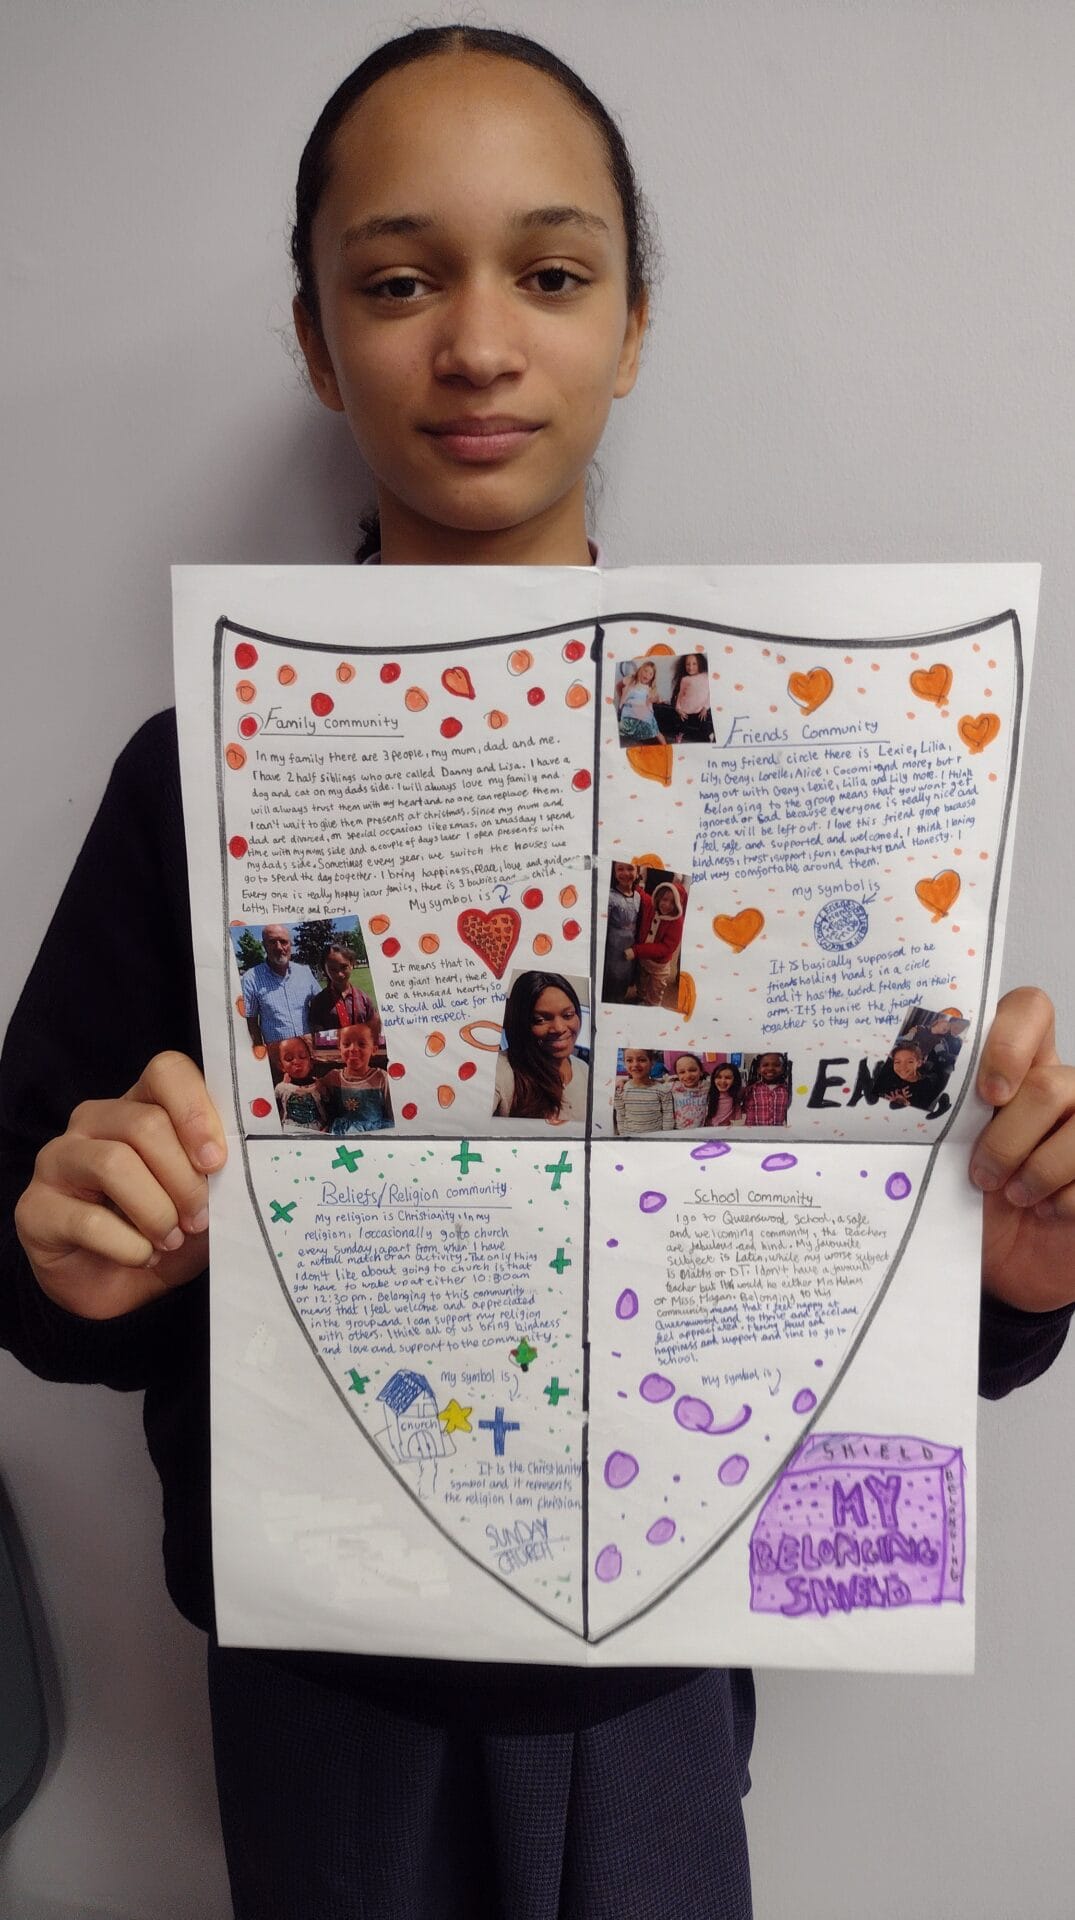 Family community
In my family there are 3 people, my mum, dad and me.
I have 2 half siblings who are called Danny and Lisa. I have a
dog and cat on my dads side. I will always love my family and
will always trust them with my heart and no one can replace them.
I can't wait to give them presents at christmas. Since my mum and
dad are divorced, on special occasions like xmas, on xmasday I spend
time with my mums side and a couple of days later I open presents with
my dads side. Sometimes every year, we switch the houses we
go to spend the day together. I bring happiness, love and
Every one is really happy in our family, there is 3 babies child.
Lotty, Florence and Rory.
My symbol is
It means that in
one giant heart, there
are a thousand hearts, so
we should all care for
with respect.
Friends Community
In my friend circle there is Lexie, Lilia,
Lily, Geny, Lorelle, Alice, Cocomi and more, but I
hang out with Geny, Lexie, Lilia and Lily more. I think
Belonging to the group means that you wont get
ignored or sad because everyone is really nice and
no one will be left out. I love this friend group because
I feel safe and supported and welcomed. I think I bring
kindness, trust, support, fun, empathy and Honesty. I
feel very comfortable around them.
my symbol is
It is basically supposed to be
friends holding hands in a circle
and it has the word friends on their
arms. Its to unite the friends
together so they are happy.
Beliefs/Religion community
My religion is Christianity. In my
religion, I occasionally go to church
every Sunday, apart from when I have
a netball match or an activity. The only thing
I don't like about going to church is that
you have to wake up at either 10:30am
or 12:30 pm. Belonging to this community
means that I feel welcome and appreciated
in the group and I can support my religion
with others. I think all of us bring kindness
and love and support to the community.
my symbol is
church
It is the Christianity
symbol and it represents
the religion I am christian
SUNDAY
CHURCH
School Community
I go to Queenswood School, a safe
and welcoming community, the teachers
are fabulous and kind. My favourite
subject is Latin, while my worse subject
is Maths or DT. I don't have a favourite
teacher but it would be either Mrs Holmes
or Miss Magan. Belonging to this
community means that I feel happy at
Queenswood and to thrive and excel and
feel appreciated. I bring
happiness and support and to go to
school.
my symbol is
SHIELD
BELONGING
MY
BELONGING
SHIELD